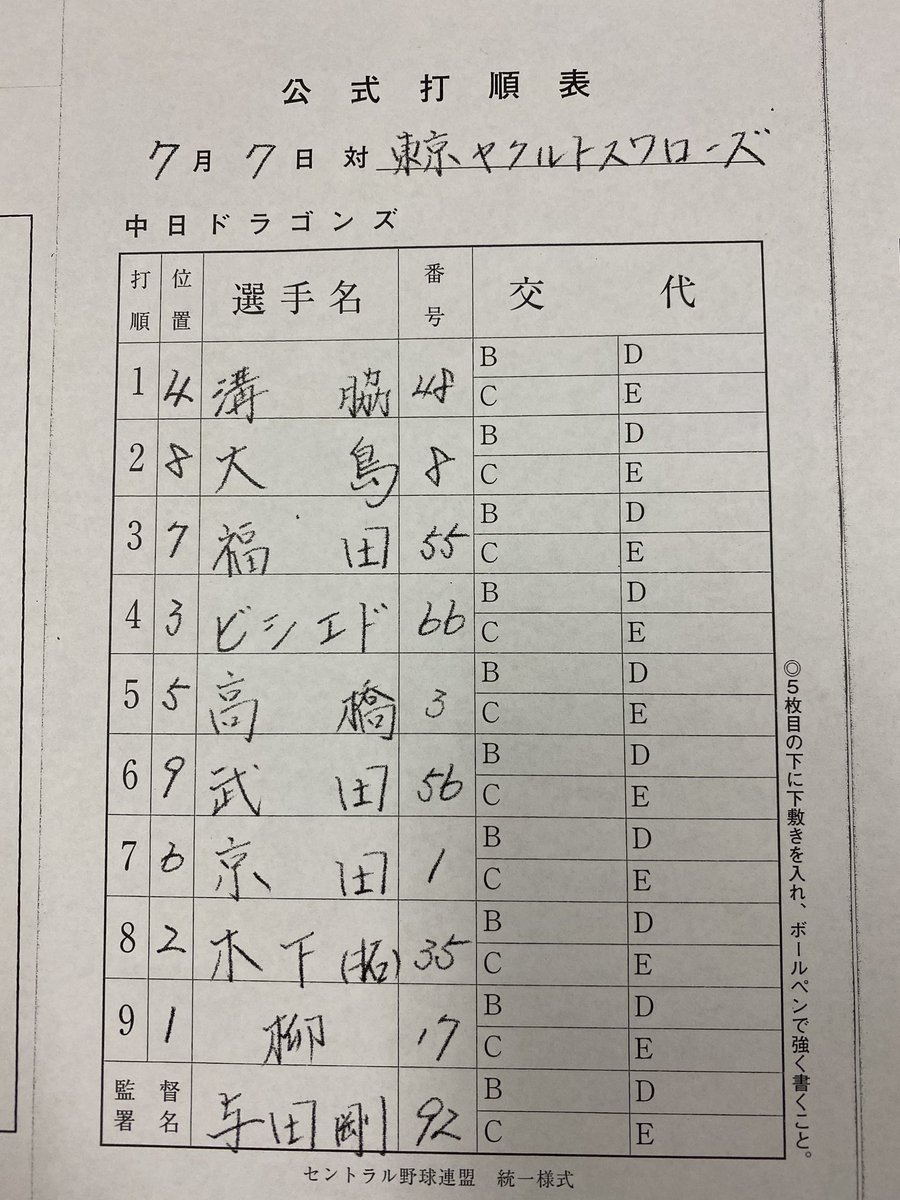 公式打順表
7月7日対 東京ヤクルトスワローズ
中日ドラゴンズ
打順 位置 選手名 番号 交代
1 4 溝脇 48 B D
C E
2 8 大島 8 B D
C E
3 7 福田 55 B D
C E
4 3 ビシエド 66 B D
C E
5 5 高橋 3 B D
C E
6 9 武田 56 B D
C E
7 6 京田 1 B D
C E
8 2 木下(拓) 35 B D
C E
9 1 柳 17 B D
C E
監督署名 与田剛 92 B D
C E
セントラル野球連盟 統一様式
◎5枚目の下に下敷きを入れ、ボールペンで強く書くこと。